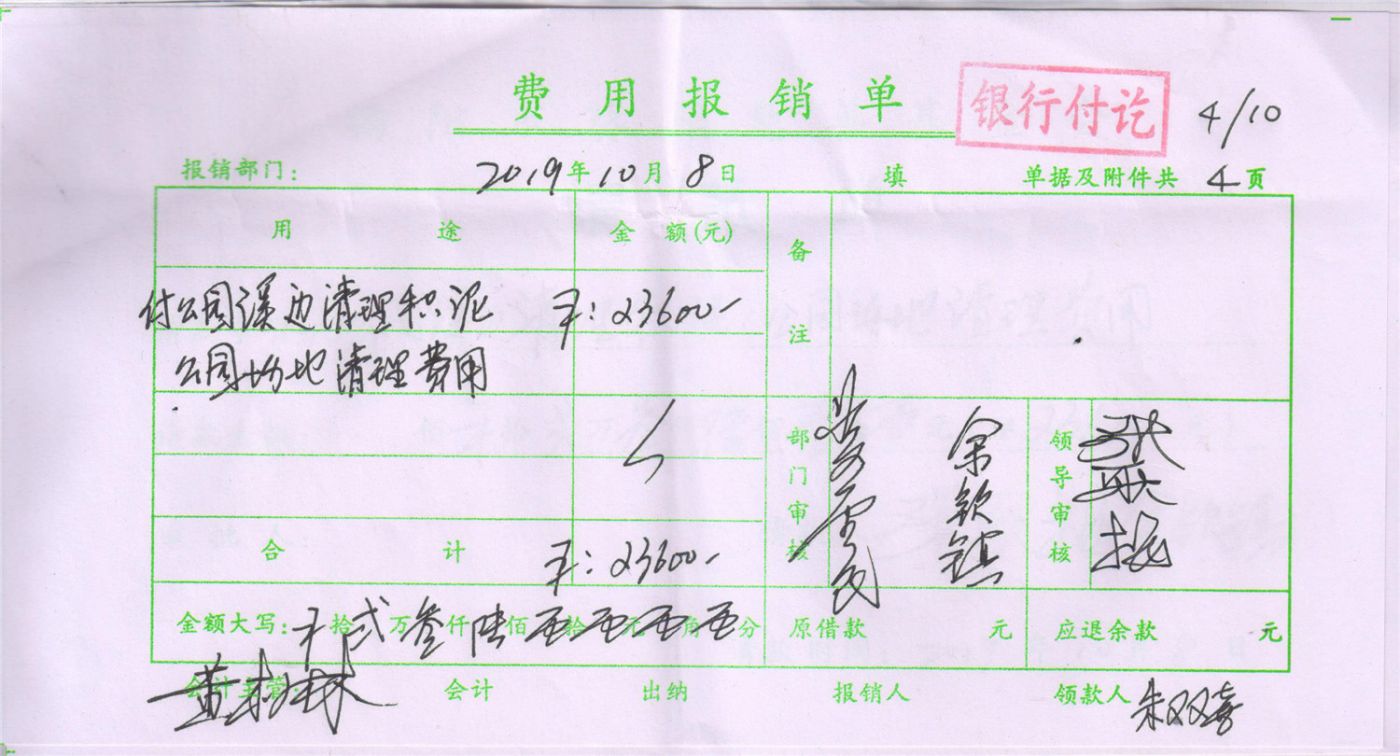 费用报销单
银行付讫
4/10
报销部门: 2019年10月8日 填 单据及附件共 4 页
用途 金额(元) 备注
付公园溪边清理积泥 ¥:23600-
公园场地清理费用
部门审核 余钦镇 领导审核
合计 ¥:23600-
金额大写: 拾贰万叁仟陆佰零拾零元零角零分 原借款 元 应退余款 元
会计主管: 会计 出纳 报销人 领款人 朱双喜